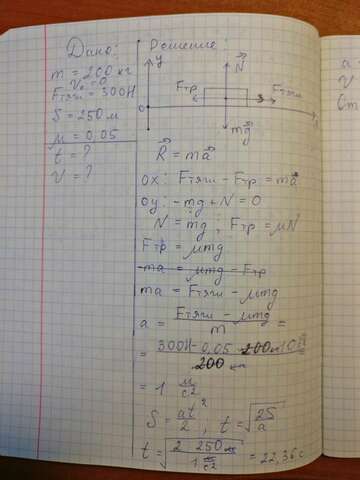 Дано:
m = 200 кг
V₀ = 0
Fтяги = 300Н
S = 250 м
μ = 0,05
t = ?
V = ?
Решение:
y
N
Fтр
Fтяги
0
x
mg
R = ma
ox: Fтяги - Fтр = ma
oy: -mg + N = 0
N = mg ; Fтр = μN
Fтр = μmg
ma = μmg - Fтр
ma = Fтяги - μmg
a = Fтяги - μmg / m =
= 300Н - 0,05 · 200 · 10 / 200 кг
= 1 м/с²
S = at²/2 , t = √2S/a
t = √2 · 250 м / 1 м/с² = 22,36 с
a
V